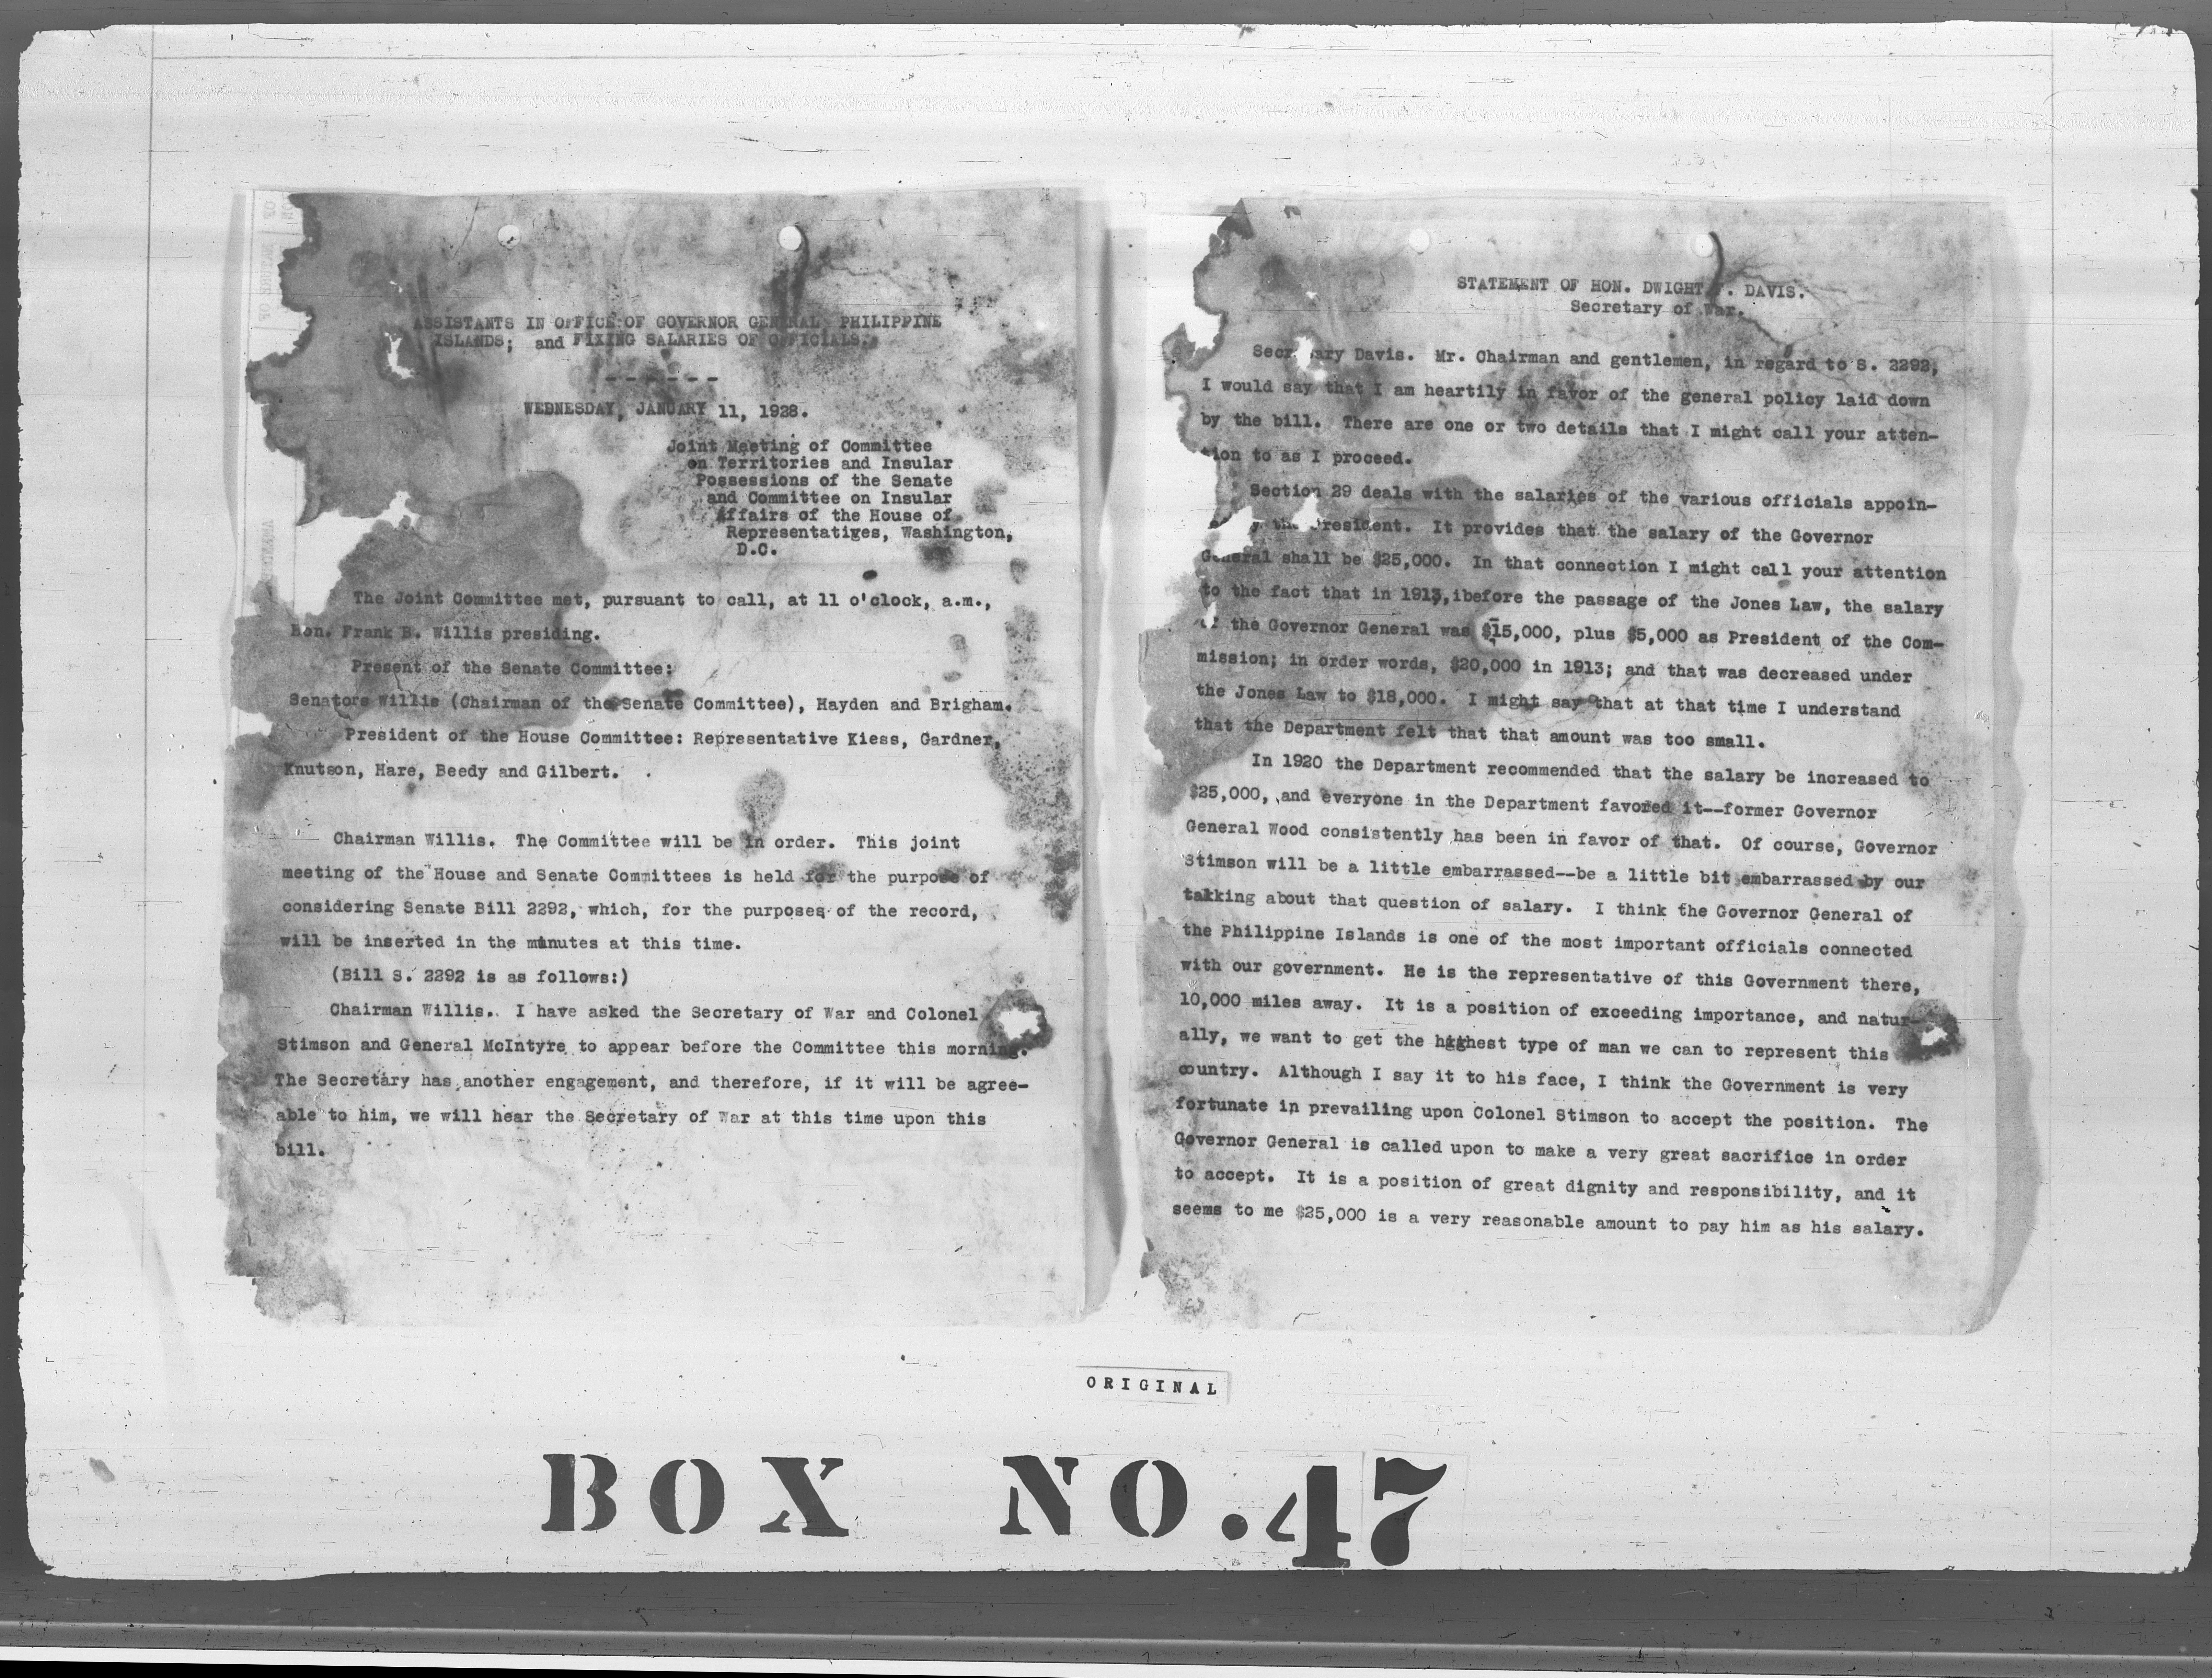 ASSISTANTS IN OFFICE OF GOVERNOR GENERAL PHILIPPINE
ISLANDS; and FIXING SALARIES OF OFFICIALS.
------
WEDNESDAY, JANUARY 11, 1928.
Joint Meeting of Committee
on Territories and Insular
Possessions of the Senate
and Committee on Insular
Affairs of the House of
Representatiges, Washington,
D.C.
The Joint Committee met, pursuant to call, at 11 o'clock, a.m.,
Hon. Frank B. Willis presiding.
Present of the Senate Committee:
Senators Willis (Chairman of the Senate Committee), Hayden and Brigham.
President of the House Committee: Representative Kiess, Gardner,
Knutson, Hare, Beedy and Gilbert.
Chairman Willis. The Committee will be in order. This joint
meeting of the House and Senate Committees is held for the purpose of
considering Senate Bill 2292, which, for the purposes of the record,
will be inserted in the minutes at this time.
(Bill S. 2292 is as follows:)
Chairman Willis. I have asked the Secretary of War and Colonel
Stimson and General McIntyre to appear before the Committee this morning.
The Secretary has another engagement, and therefore, if it will be agree-
able to him, we will hear the Secretary of War at this time upon this
bill.
STATEMENT OF HON. DWIGHT F. DAVIS.
Secretary of War.
Secretary Davis. Mr. Chairman and gentlemen, in regard to S. 2292,
I would say that I am heartily in favor of the general policy laid down
by the bill. There are one or two details that I might call your atten-
tion to as I proceed.
Section 29 deals with the salaries of the various officials appoin-
by the President. It provides that the salary of the Governor
General shall be $25,000. In that connection I might call your attention
to the fact that in 1913, before the passage of the Jones Law, the salary
of the Governor General was $15,000, plus $5,000 as President of the Com-
mission; in order words, $20,000 in 1913; and that was decreased under
the Jones Law to $18,000. I might say that at that time I understand
that the Department felt that that amount was too small.
In 1920 the Department recommended that the salary be increased to
$25,000, and everyone in the Department favored it--former Governor
General Wood consistently has been in favor of that. Of course, Governor
Stimson will be a little embarrassed--be a little bit embarrassed by our
talking about that question of salary. I think the Governor General of
the Philippine Islands is one of the most important officials connected
with our government. He is the representative of this Government there,
10,000 miles away. It is a position of exceeding importance, and natur-
ally, we want to get the highest type of man we can to represent this
country. Although I say it to his face, I think the Government is very
fortunate in prevailing upon Colonel Stimson to accept the position. The
Governor General is called upon to make a very great sacrifice in order
to accept. It is a position of great dignity and responsibility, and it
seems to me $25,000 is a very reasonable amount to pay him as his salary.
ORIGINAL
BOX NO. 47